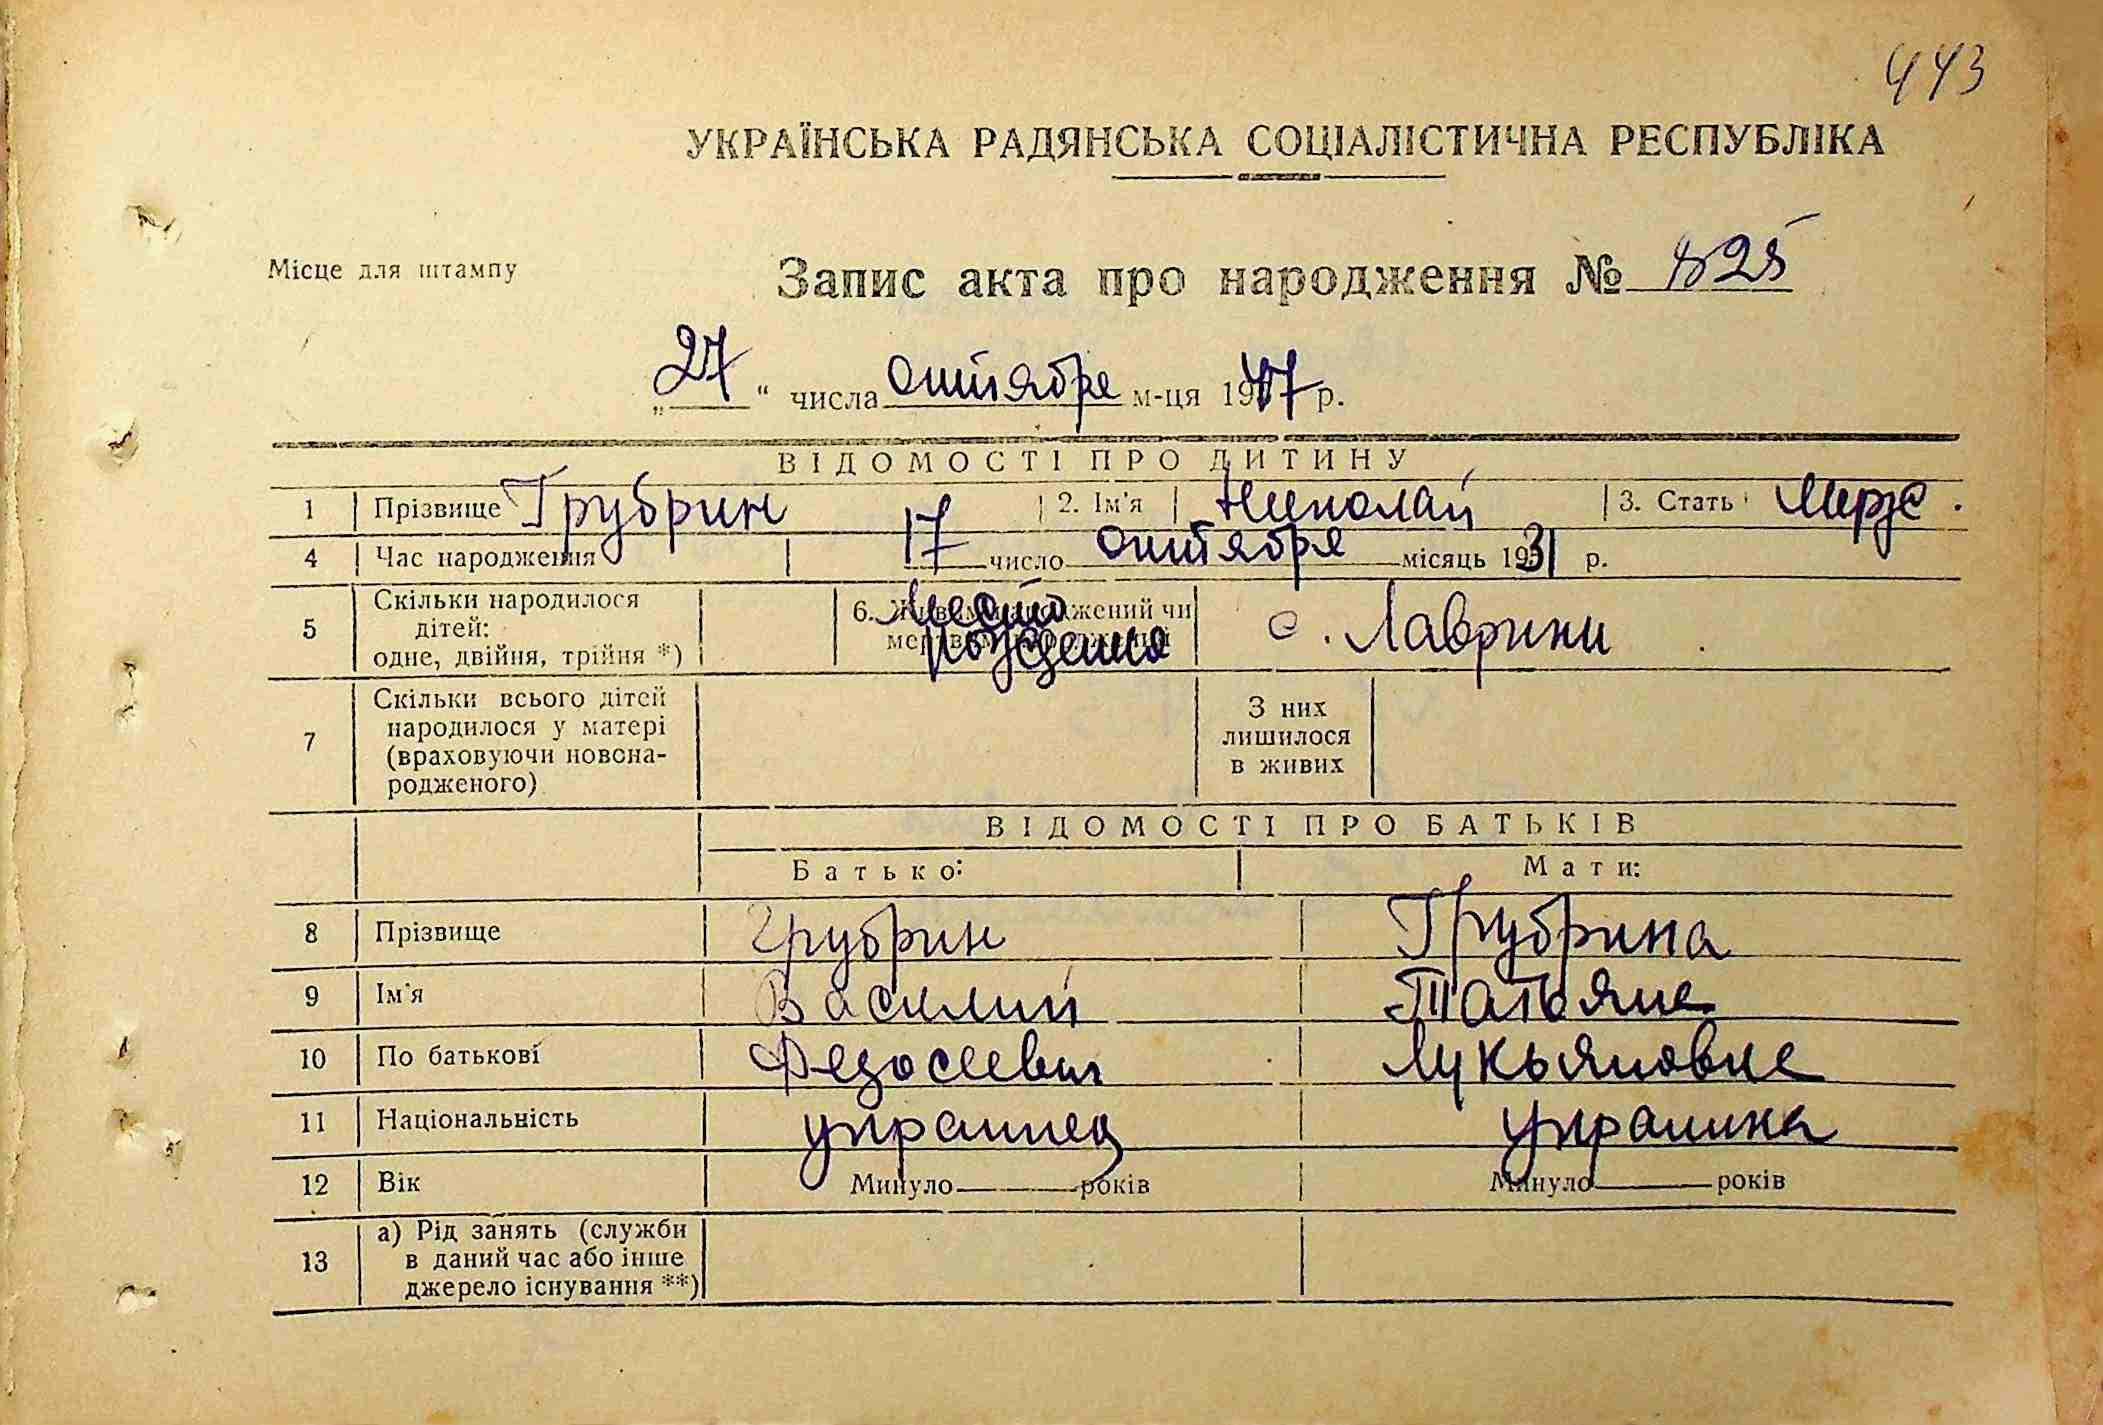 443
УКРАЇНСЬКА РАДЯНСЬКА СОЦІАЛІСТИЧНА РЕСПУБЛІКА
Місце для штампу
Запис акта про народження № 825
„27“ числа октября м-ця 1947 р.
ВІДОМОСТІ ПРО ДИТИНУ
1 Прізвище Грубрин 2. Ім'я Николай 3. Стать Мужс.
4 Час народження 17 число октября місяць 1931 р.
5 Скільки народилося дітей: одне, двійня, трійня *) 6. Живим народжений чи мертвим народжений Место рождения с. Лаврики
7 Скільки всього дітей народилося у матері (враховуючи новона-родженого) З них лишилося в живих
ВІДОМОСТІ ПРО БАТЬКІВ
Батько: Мати:
8 Прізвище Грубрин Грубрина
9 Ім'я Василий Татьяна
10 По батькові Федосеевич Лукьяновна
11 Національність украинец украинка
12 Вік Минуло років Минуло років
13 а) Рід занять (служби в даний час або інше джерело існування **)